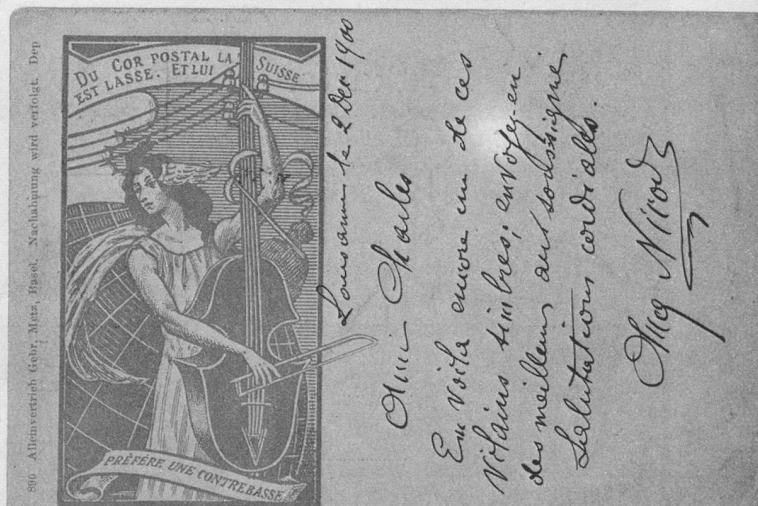 890 Alleinvertrieb Gebr. Metz, Basel. Nachahmung wird verfolgt. Dep
DU COR POSTAL LA SUISSE
EST LASSE. ET LUI
PRÉFÉRE UNE CONTREBASSE
Lausanne le 2 Dec 1900
Ami Charles
En voila encore un de ces
vilains timbres; envoyez-en
des meilleurs au soussigné,
Salutations cordiales.
Nirod